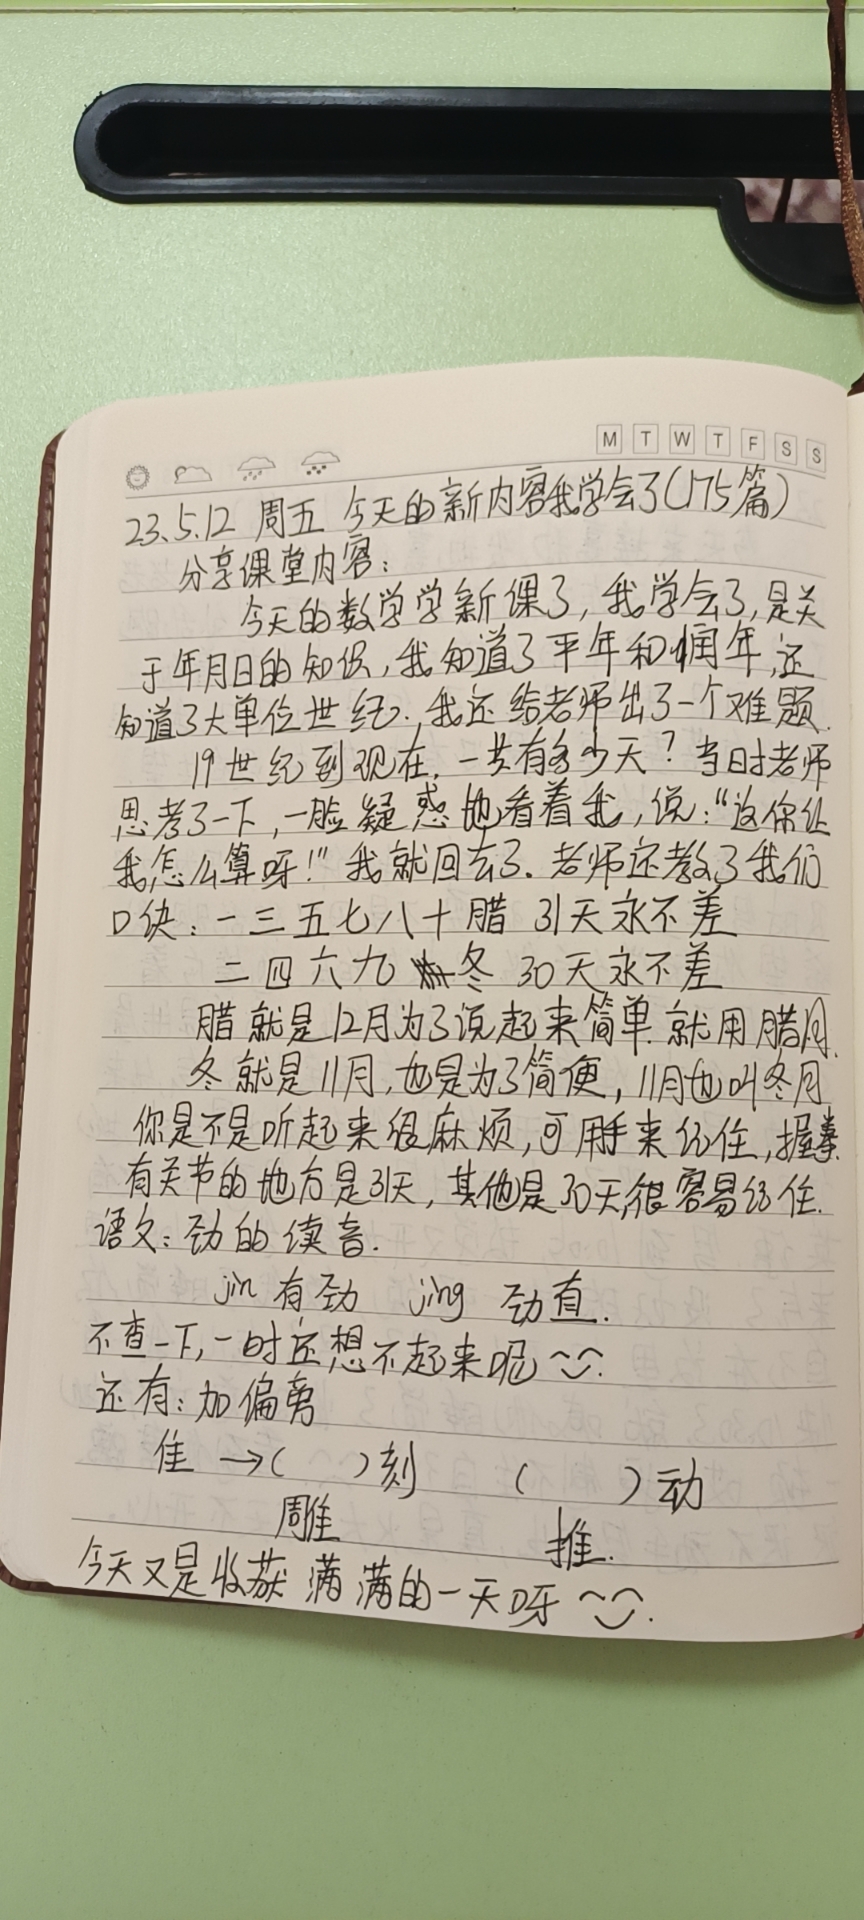 M T W T F S S
23.5.12 周五 今天的新内容我学会了(175篇)
分享课堂内容:
今天的数学学新课了,我学会了,是关
于年月日的知识,我知道了平年和润年,还
知道了大单位世纪.,我还给老师出了一个难题.
19世纪到现在,一共有多少天?当时老师
思考了一下,一脸疑惑地看着我,说:“这你让
我怎么算呀!”我就回去了.老师还教了我们
口诀:一三五七八十腊 31天永不差
二四六九冬 30天永不差
腊就是12月为了说起来简单.就用腊月.
冬就是11月,也是为了简便,11月也叫冬月
你是不是听起来很麻烦,可用手来记住,握拳.
有关节的地方是31天,其他是30天,很容易记住.
语文:劲的读音.
jin 有劲 jing 劲直.
不查一下,一时还想不起来呢
还有:加偏旁
隹 →( )刻 ( )动
雕
推.
今天又是收获满满的一天呀